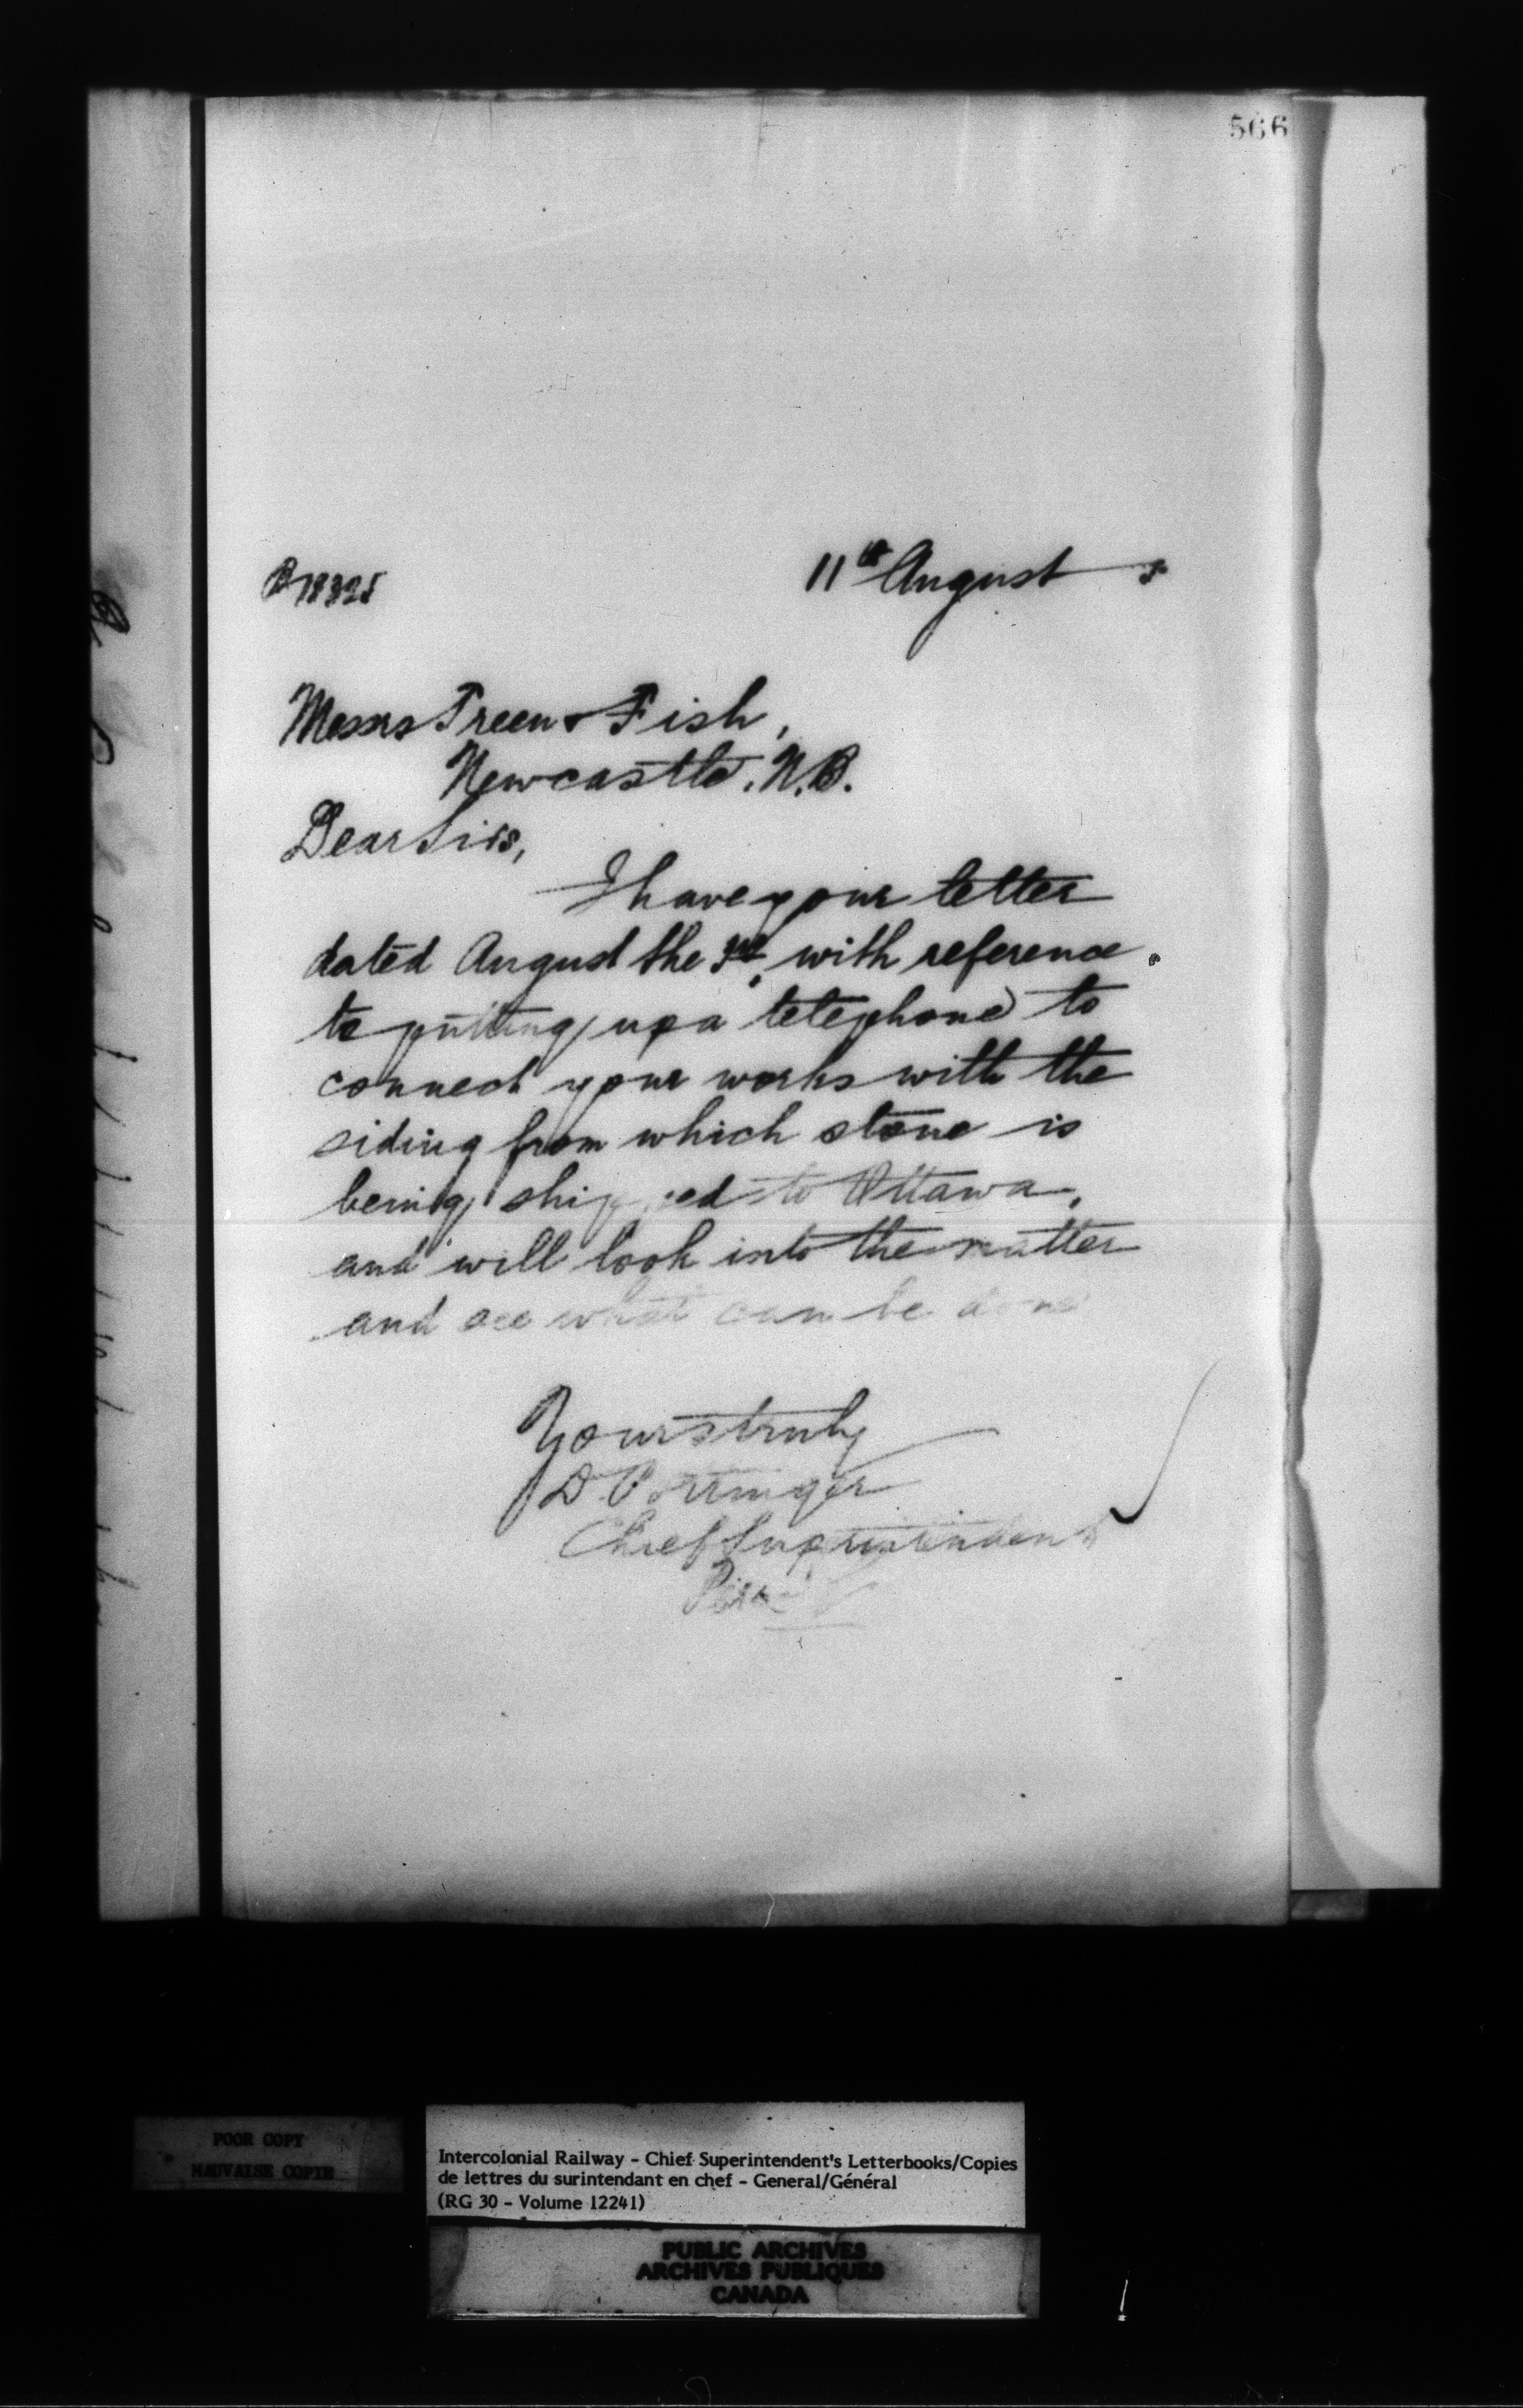 566
11th August
Messrs Treen & Fish,
Newcastle. N.B.
Dear Sirs,
I have your letter
dated August the 3rd, with reference
to putting up a telephone to
connect your works with the
siding from which stone is
being shipped to Ottawa,
and will look into the matter
and see what can be done
Yours truly
D Pottinger
Chief Superintendent
POOR COPY
MAUVAISE COPIE
Intercolonial Railway - Chief Superintendent's Letterbooks/Copies
de lettres du surintendant en chef - General/Général
(RG 30 - Volume 12241)
PUBLIC ARCHIVES
ARCHIVES PUBLIQUES
CANADA